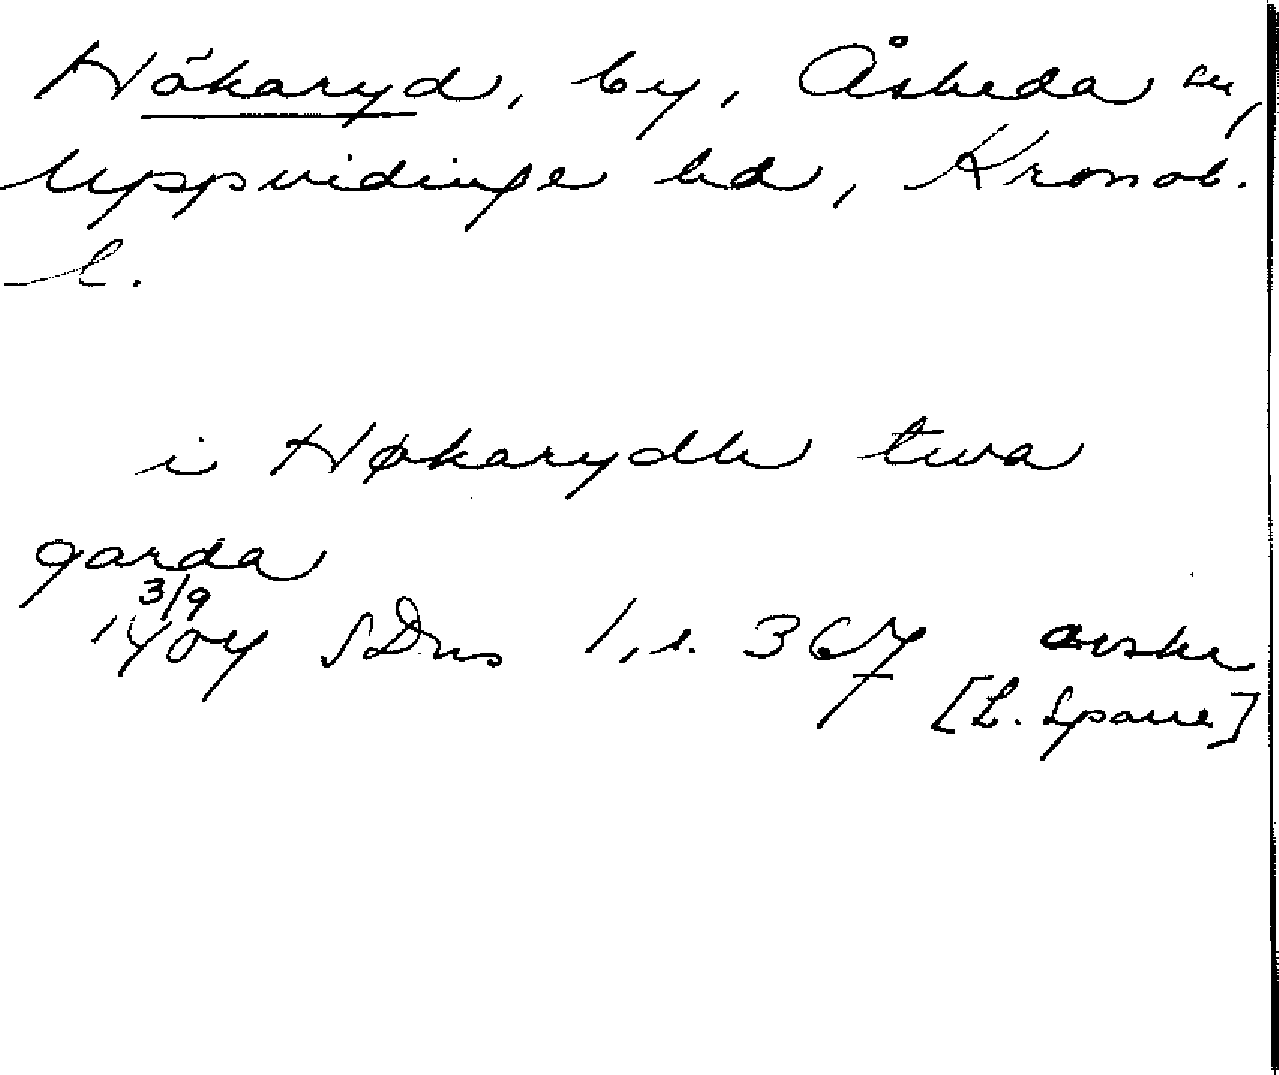 Hökaryd, by, Åsheda sn,
Uppvidinge hd, Kronob.
l.
i Høkarydh twa
garda
3/9
1404 SDns 1, s. 367 avskr
[L. Sparre]